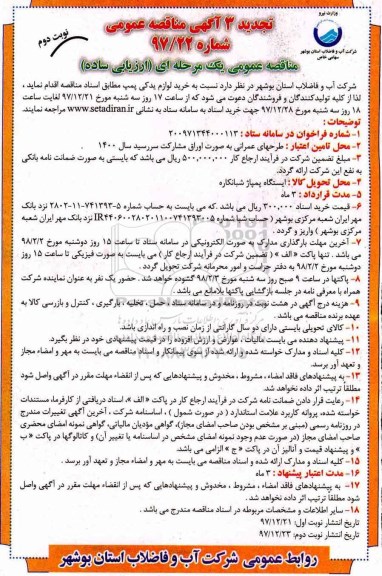 وزارت نیرو
شرکت آب و فاضلاب استان بوشهر
سهامی خاص
نوبت دوم
تجدید ۳ آگهی مناقصه عمومی
شماره ۹۷/۲۲
مناقصه عمومی یک مرحله ای (ارزیابی ساده)
شرکت آب و فاضلاب استان بوشهر در نظر دارد نسبت به خرید لوازم یدکی پمپ مطابق اسناد مناقصه اقدام نماید ،
لذا از کلیه تولیدکنندگان و فروشندگان دعوت می شود که از ساعت ۱۷ روز سه شنبه مورخ ۹۷/۱۲/۲۱ لغایت ساعت
۱۸ روز سه شنبه مورخ ۹۷/۱۲/۲۸ جهت خرید اسناد به سامانه ستاد به نشانی www.setadiran.ir مراجعه نمایند.
توضیحات :
۱- شماره فراخوان در سامانه ستاد : ۲۰۰۹۷۱۳۴۴۰۰۰۱۱۳
۲- محل تامین اعتبار : طرحهای عمرانی به صورت اوراق مشارکت سررسید سال ۱۴۰۰ .
۳- مبلغ تضمین شرکت در فرآیند ارجاع کار ۵۰۰,۰۰۰,۰۰۰ ریال می باشد که بایستی به صورت ضمانت نامه بانکی
به نفع این شرکت ارائه گردد.
۴- محل تحویل کالا : ایستگاه پمپاژ شبانکاره
۵- مدت قرارداد : ۳ ماه
۶- قیمت خرید اسناد ۳۰۰,۰۰۰ ریال می باشد .که می بایست به حساب شماره ۵-۷۴۱۳۹۳-۱۱-۲۸۰۲ نزد بانک
مهر ایران شعبه مرکزی بوشهر ( حساب شبا شماره IR۴۴۰۶۰۰۲۸۰۲۰۱۱۰۰۷۴۱۳۹۳۰۰۵ نزد بانک مهر ایران شعبه
مرکزی بوشهر ) واریز و گردد .
۷- آخرین مهلت بارگذاری مدارک به صورت الکترونیکی در سامانه ستاد تا ساعت ۱۵ روز دوشنبه مورخ ۹۸/۲/۲
می باشد . تنها پاکت « الف » ( تضمین شرکت در فرآیند ارجاع کار ) می بایست به صورت فیزیکی تا ساعت ۱۵ روز
دوشنبه مورخ ۹۸/۲/۲ به دفتر حراست و امور محرمانه شرکت تحویل گردد .
۸- پاکتها در ساعت ۹ صبح روز سه شنبه مورخ ۹۸/۲/۳ گشوده خواهد شد . حضور یک نفر به عنوان نماینده شرکت
همراه با معرفی نامه در جلسه بازگشایی پاکتها بلامانع می باشد .
۹- هزینه درج آگهی در هشت نوبت در روزنامه و در سامانه ستاد ، حمل ، تخلیه ، بارگیری ، کنترل و بازرسی کالا به
عهده برنده مناقصه می باشد.
۱۰- کالای تحویلی بایستی دارای دو سال گارانتی از زمان نصب و راه اندازی باشد.
۱۱- پیشنهاد دهنده می بایست مالیات ، عوارض و ارزش افزوده را در قیمت پیشنهادی خود در نظر بگیرد.
۱۲- کلیه اسناد و مدارک خواسته شده و ارائه شده از سوی پیمانکار و اسناد مناقصه می بایست به مهر و امضاء مجاز
و تعهد آور برسد.
۱۳- به پیشنهادهای فاقد امضاء ، مشروط ، مخدوش و پیشنهادهایی که پس از انقضاء مهلت مقرر در آگهی واصل شود
مطلقاً ترتیب اثر داده نخواهد شد.
۱۴- رعایت قرار دادن ضمانت نامه شرکت در فرآیند ارجاع کار در پاکت « الف »، اسناد دریافتی از کارفرما، مستندات
خواسته شده، پروانه کاربرد علامت استاندارد ( در صورت شمول ) ، اساسنامه شرکت ، آخرین آگهی تغییرات مندرج
در روزنامه رسمی (مبنی بر مشخص بودن صاحب امضای مجاز)، گواهی مؤدیان مالیاتی، گواهی نمونه امضای محضری
صاحب امضای مجاز (در صورت عدم وجود نمونه امضای مشخص در اساسنامه یا تغییر آن) و کاتالوگها در پاکت « ب
» و پیشنهاد قیمت و آنالیز آن در پاکت « ج » الزامی می باشد.
۱۵- کلیه اسناد و مدارک ارائه شده و اسناد مناقصه می بایست به مهر و امضاء مجاز و تعهد آور برسد .
۱۶- مدت اعتبار پیشنهاد : ۳ ماه
۱۷- به پیشنهادهای فاقد امضاء ، مشروط ، مخدوش و پیشنهادهایی که پس از انقضاء مهلت مقرر در آگهی واصل
شود مطلقاً ترتیب اثر داده نخواهد شد .
۱۸- سایر اطلاعات و مشخصات مربوطه در اسناد مناقصه مندرج می باشد .
تاریخ انتشار نوبت اول: ۹۷/۱۲/۲۱
تاریخ انتشار نوبت دوم: ۹۷/۱۲/۲۳
روابط عمومی شرکت آب و فاضلاب استان بوشهر